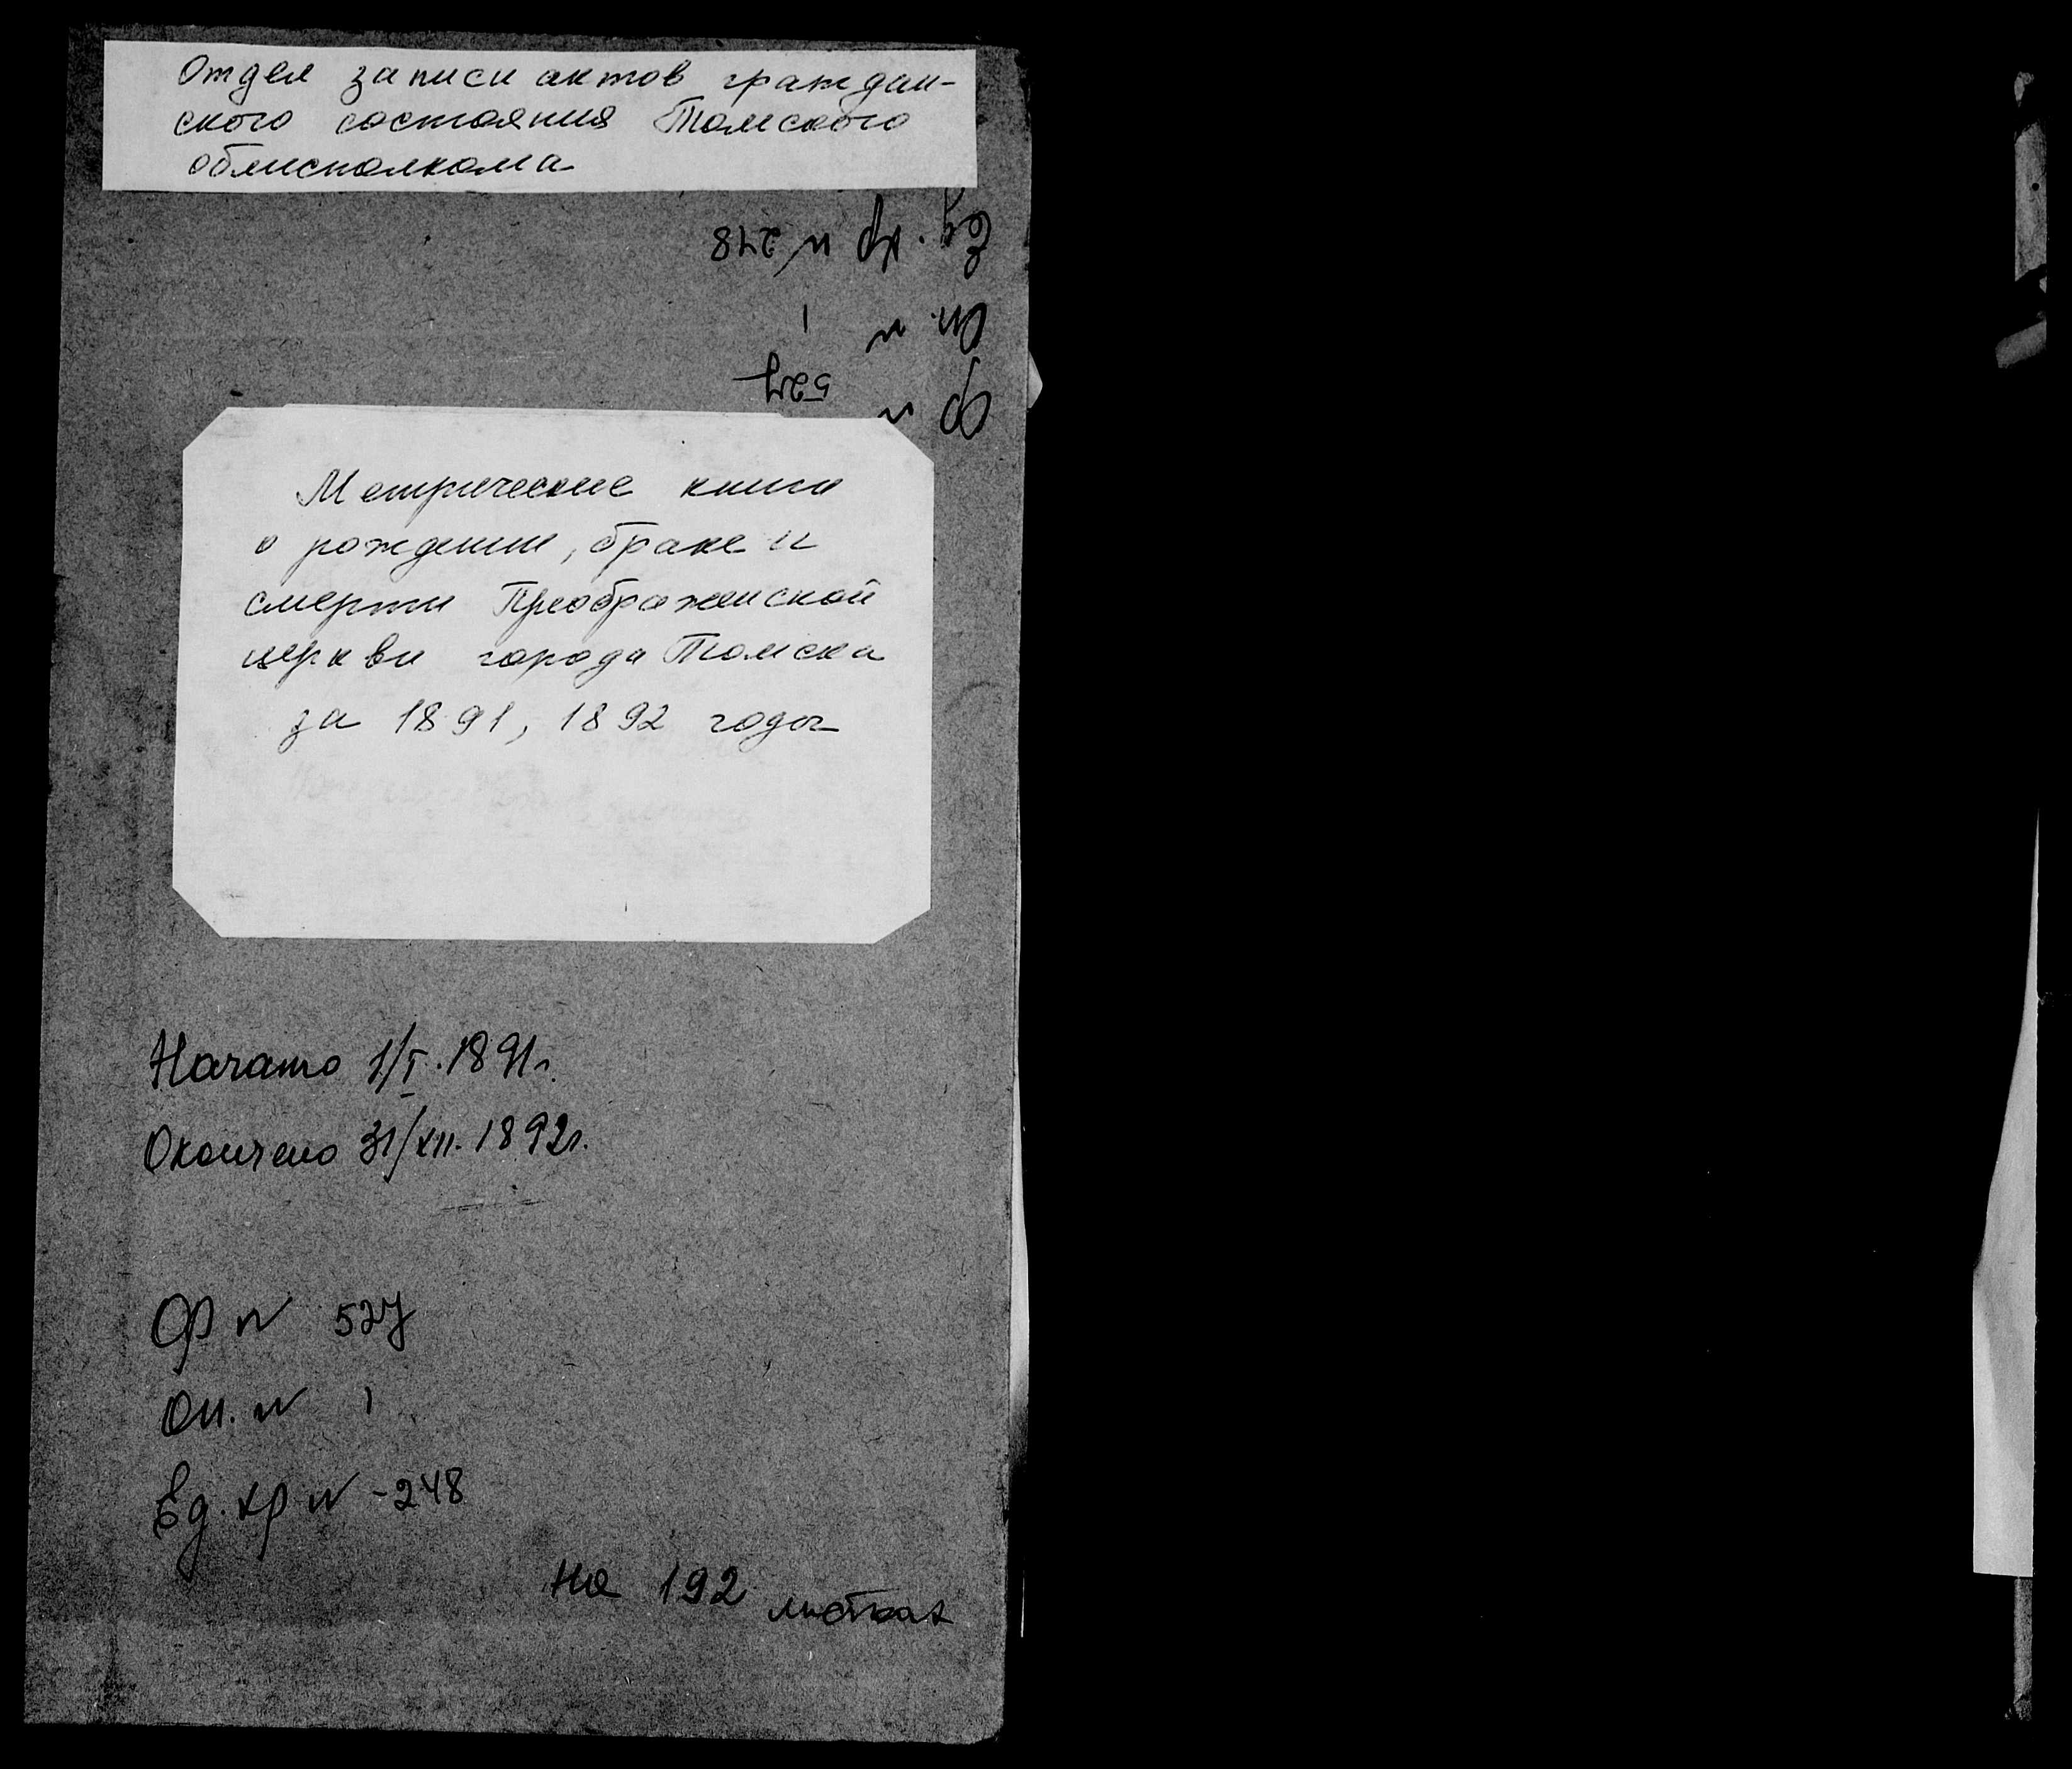 Отдел записи актов граждан-
ского состояния Томского
облисполкома
Ед. хр № 248
Оп. № 1
Ф № 527
Метрические книги
о рождении, браке и
смерти Преображенской
церкви города Томска
за 1891, 1892 годы
Начато 1/I.1891г.
Окончено 31/XII.1892г.
Ф № 527
Оп. № 1
Ед. хр № -248
На 192 листках